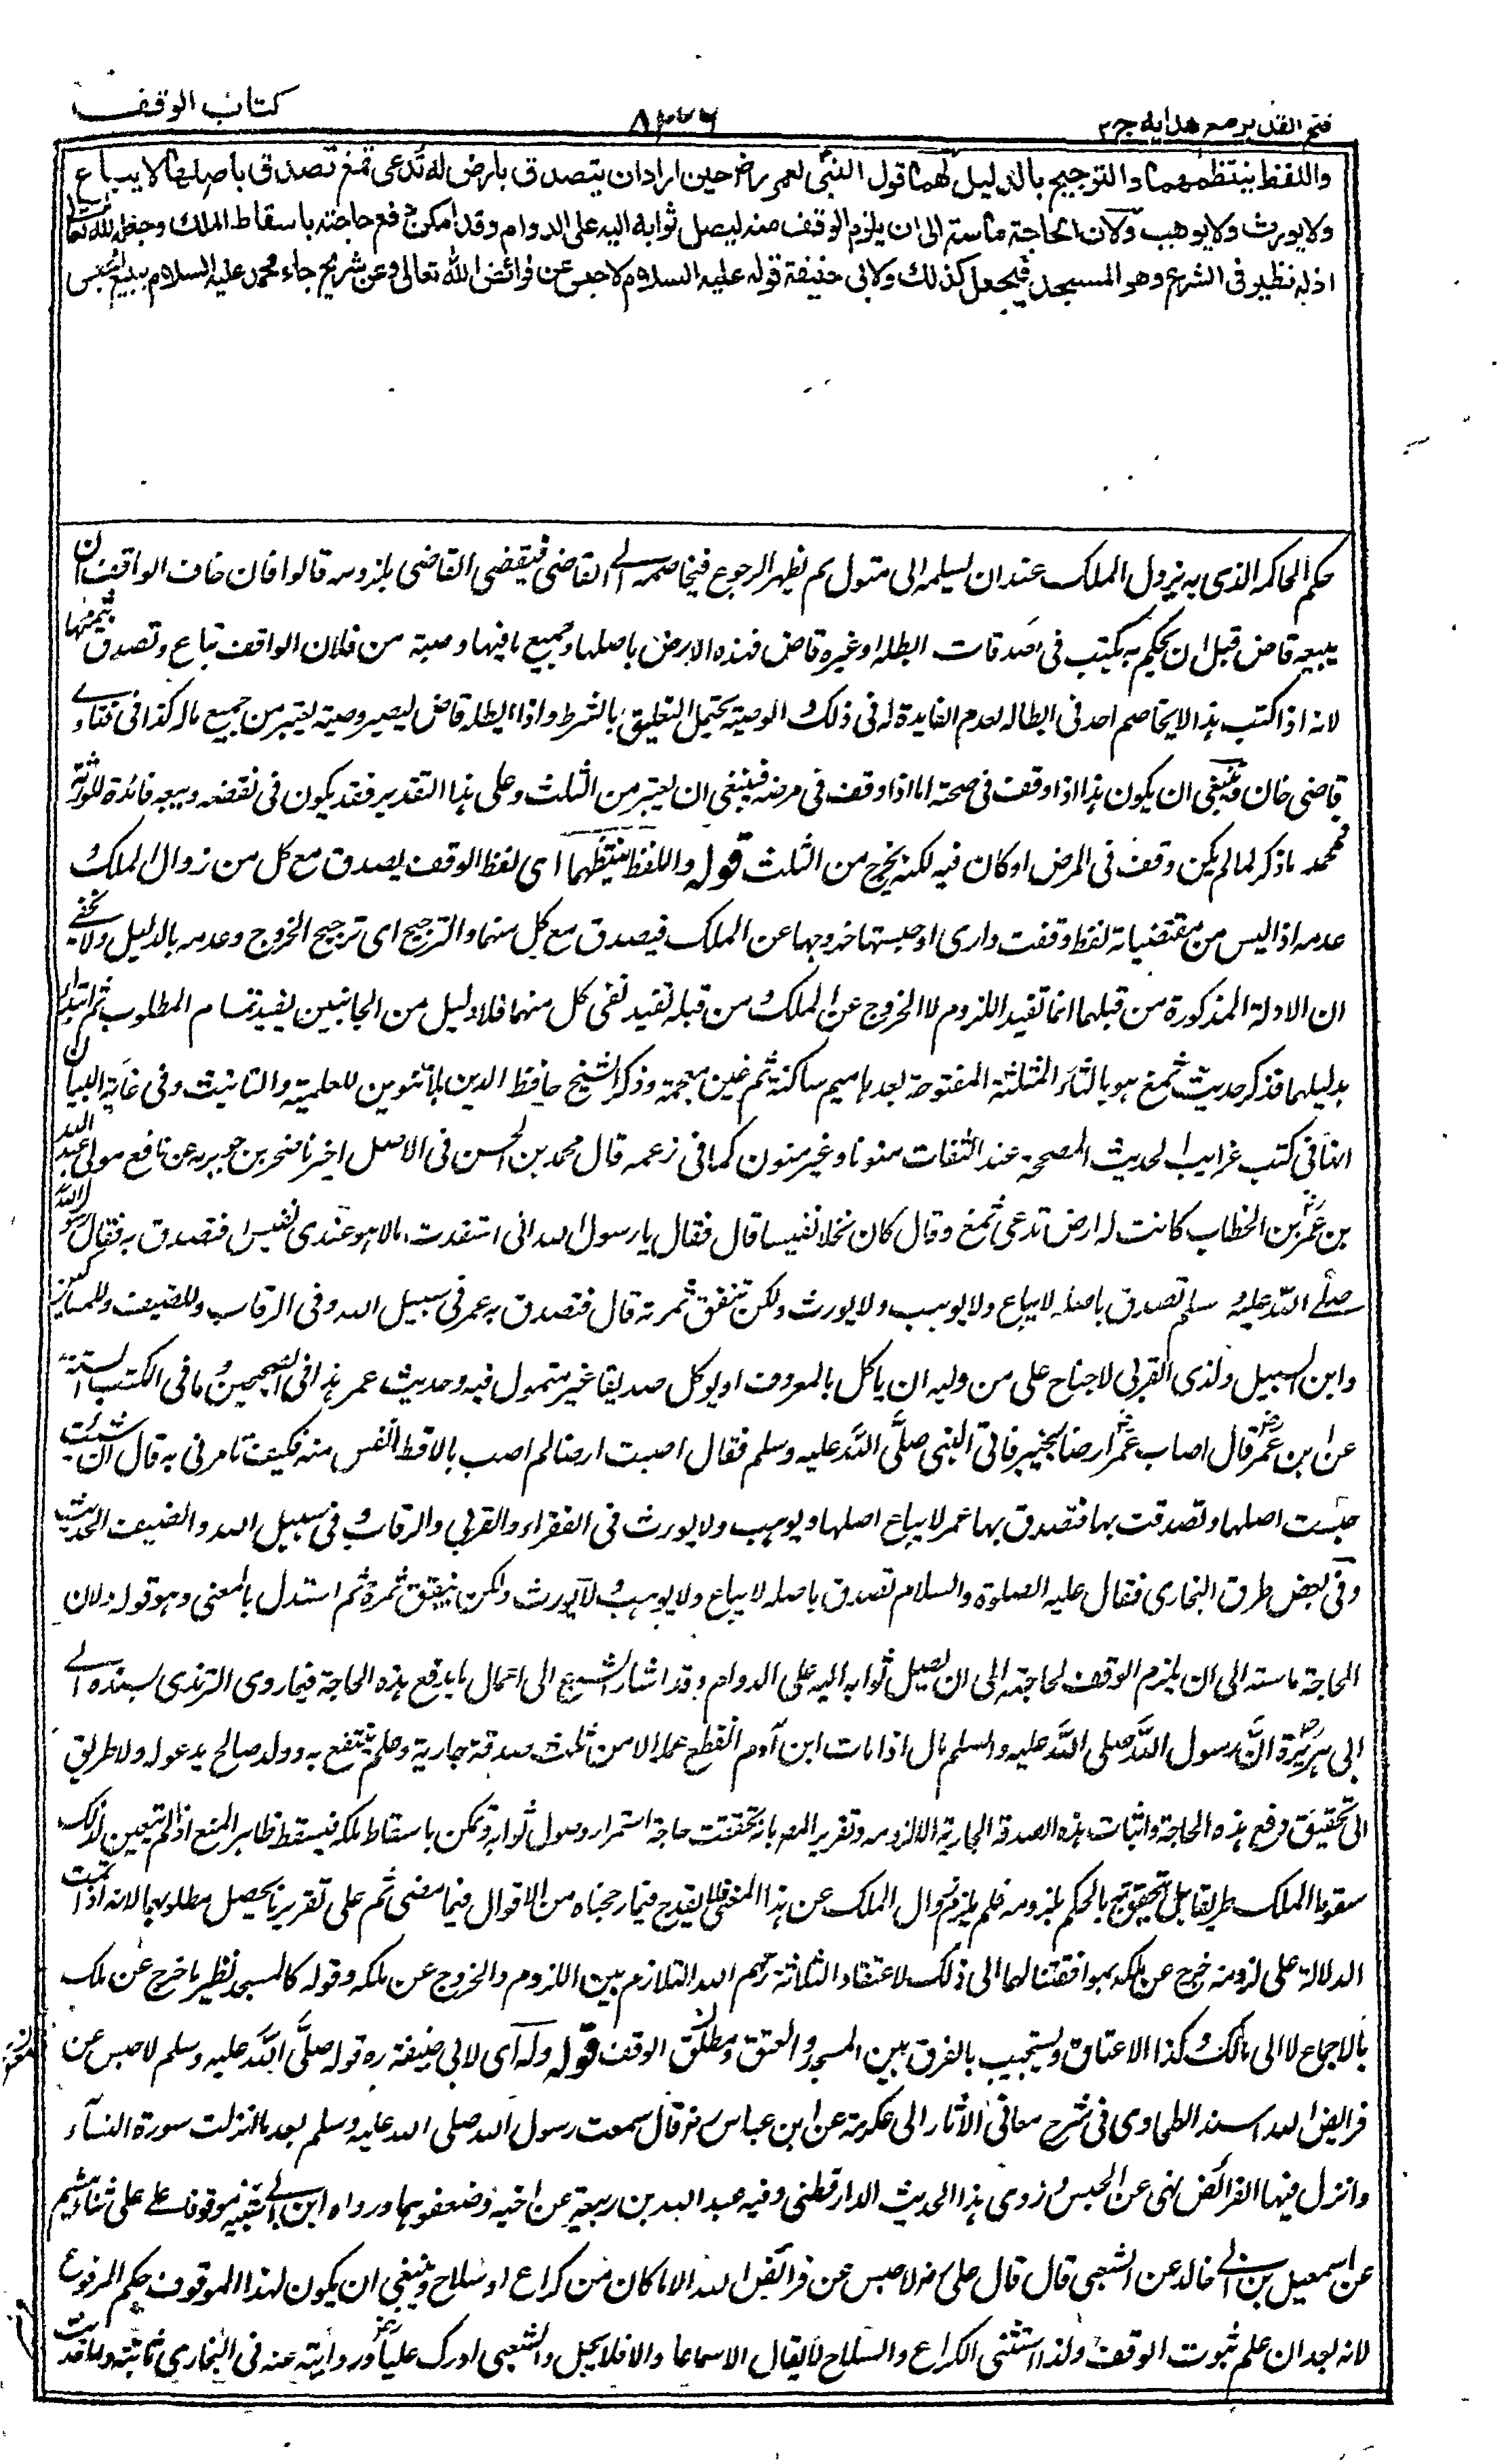 فتح القدير مع هداية ج ٢
٨٣٦
كتاب الوقف
واللفظ ينتظمهما والترجيح بالدليل لهما قول النبي لعمر رض حين اراد ان يتصدق بارض له تدعى ثمغ تصدق باصلها لا يباع
ولا يورث ولا يوهب ولان الحاجة ماسة الى ان يلزم الوقف منه ليصل ثوابه اليه على الدوام وقد امكن دفع حاجته باسقاط الملك وجعله لله تعالى
اذ له نظير في الشرع وهو المسجد فيجعل كذلك ولابى حنيفة قوله عليه السلام لا حبس عن فرائض الله تعالى وعن شريح جاء محمد عليه السلام ببيع الحبيس
حكم الحاكم الذى به يزول الملك عنده ان يسلمه الى متول ثم يظهر الرجوع فيخاصمه الى القاضى فيقضى القاضى بلزومه قالوا فان خاف الواقف ان
يبيعه قاض قبل ان يحكم به يكتب فى صدقات ابطله او غيره قاض فهذه الارض باصلها وجميع ما فيها وصية من فلان الواقف تباع وتصدق بثمنها
لانه اذا كتب هذا لا يخاصم احد فى ابطاله لعدم الفايدة له فى ذلك الوصية يحتمل التعليق بالشرط واذا ابطله قاض ليصير وصية يعتبر من جميع ماله كذا فى فتاوى
قاضى خان وينبغى ان يكون هذا اذا وقف فى صحته اما اذا وقف فى مرضه فينبغى ان يعتبر من الثلث وعلى هذا التقدير فقد يكون فى نقضه وبيعه فائدة للورثة
فمحمد ما ذكر لما لم يكن وقف فى المرض او كان فيه لكنه يخرج من الثلث قوله واللفظ ينتظمهما اى لفظ الوقف يصدق مع كل من زوال الملك و
عدمه اذ ليس من مقتضيات لفظ وقفت دارى او حبستها خروجها عن الملك فيصدق مع كل منهما والترجيح اى ترجيح الخروج وعدمه بالدليل ولا يخفى
ان الادلة المذكورة من قبلهما انما تفيد اللزوم لا الخروج عن الملك ومن قبله تفيد نفى كل منهما فلا دليل من الجانبين يفيد تمام المطلوب ثم ابتدأ
بدليلهما فذكر حديث ثمغ هو بالثاء المثلثة المفتوحة بعدها ميم ساكنة ثم غين معجمة وذكر الشيخ حافظ الدين بلا تنوين للعلمية والتانيث وفى غاية البيان
انها فى كتب غرايب الحديث المصححة عند الثقات منونا وغير منون كما فى زعمه قال محمد بن الحسن فى الاصل اخبرنا صخر بن جويرية عن نافع مولى عبد الله
بن عمر رض بن الخطاب كانت له ارض تدعى ثمغ وقال كان نخلا نفيسا قال فقال يا رسول الله انى استفدت مالا هو عندى نفيس افتصدق به فقال رسول الله
صلى الله عليه وسلم تصدق باصله لا يباع ولا يوهب ولا يورث ولكن تنفق ثمرته قال فتصدق به عمر فى سبيل الله وفى الرقاب وللضيف وللمساكين
وابن السبيل ولذى القربى لا جناح على من وليه ان ياكل بالمعروف او يوكل صديقا غير متمول فيه وحديث عمر هذا فى الصحيحين وما فى الكتب الستة
عن ابن عمر رض قال اصاب عمر رض ارضا بخيبر فاتى النبى صلى الله عليه وسلم فقال اصبت ارضا لم اصب مالا قط انفس منه فكيف تامرنى به قال ان شئت
حبست اصلها وتصدقت بها فتصدق بها عمر لا يباع اصلها ويوهب ولا يورث فى الفقراء والقربى والرقاب و فى سبيل الله والضيف الحديث
وفى بعض طرق البخارى فقال عليه الصلوة والسلام تصدق باصله لا يباع ولا يوهب ولا يورث ولكن ينفق ثمرة ثم استدل بالمعنى وهو قوله ولان
الحاجة ماسة الى ان يلزم الوقف لحاجته الى ان يصل ثوابه اليه على الدوام وقد اشار الشرع الى اعمال ما يدفع هذه الحاجة فيما روى الترمذى بسنده الى
ابى هريرة رض ان رسول الله صلى الله عليه وسلم قال اذا مات ابن آدم انقطع عمله الا من ثلث صدقة جارية وعلم ينتفع به وولد صالح يدعو له ولا طريق
الى تحقيق دفع هذه الحاجة واثبات هذه الصدقة الجارية الا لزومه وتقرير المص بانه تحققت حاجة استمرار وصول ثوابه ويمكن باسقاط ملكه فيسقط ظاهر المنع اذ لم يتعين لذلك
سقوط الملك طريقا بل يتحقق بالحكم بلزومه فلم يلزم زوال الملك عن هذا المعنى فلا يقدح فيما رجحناه من الاقوال فيما مضى ثم على تقريرنا يحصل مطلوبهما لانه اذا تمت
الدلالة على لزومه خرج عن ملكه بموافقتنا لهما الى ذلك لاعتقاد الثلاثة رحمهم الله التلازم بين اللزوم والخروج عن ملكه وقوله كالمسجد نظير ما خرج عن ملك
بالاجماع لا الى مالك وكذا الاعتاق ويستجيب بالفرق بين المسجد والعتق ومطلق الوقف قوله وله اى لابى حنيفة ره قوله صلى الله عليه وسلم لا حبس عن
فرايض الله اسند الطحاوى فى شرح معانى الآثار الى عكرمة عن ابن عباس رض قال سمعت رسول الله صلى الله عليه وسلم بعد ما انزلت سورة النسآء
وانزل فيها الفرائض نهى عن الحبس وروى هذا الحديث الدارقطنى وفيه عبد الله بن ربيعة عن اخيه وضعفوهما ورواه ابن ابى شيبة موقوفا على على ثنا هشيم
عن اسمعيل بن ابى خالد عن الشعبى قال قال على رض لا حبس عن فرائض الله الا ما كان من كراع او سلاح وينبغى ان يكون لهذا الموقوف حكم المرفوع
لانه بعد ان علم ثبوت الوقف ولذا استثنى الكراع والسلاح لا يقال الا سماعا والا فلا يحل والشعبى ادرك عليا رض وروايته عنه فى البخارى ثابتة